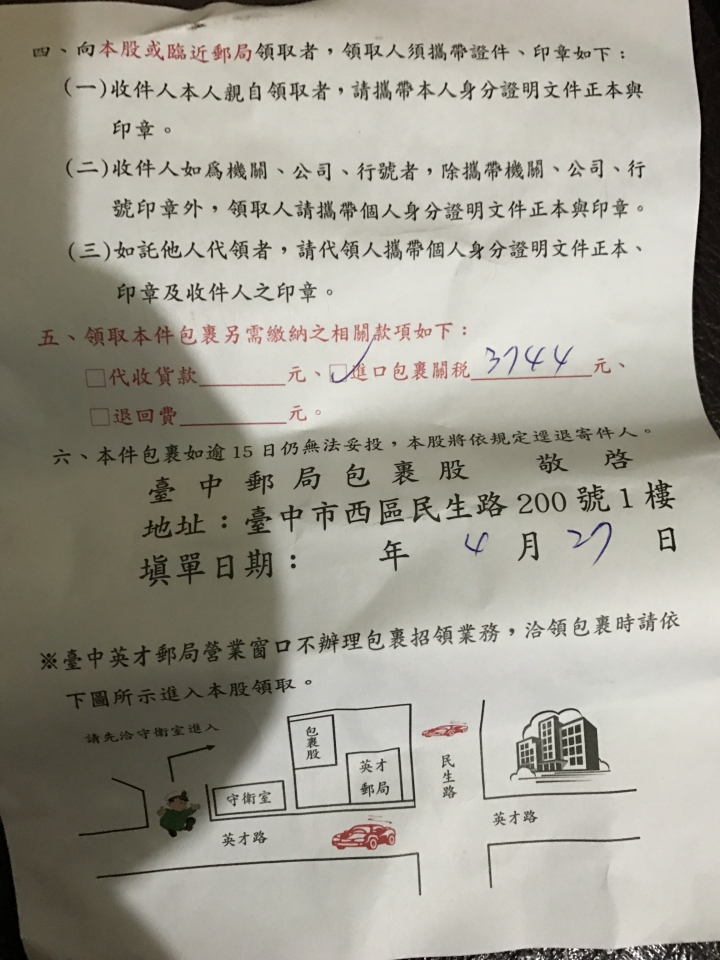 四、向本股或臨近郵局領取者，領取人須攜帶證件、印章如下：
(一)收件人本人親自領取者，請攜帶本人身分證明文件正本與
印章。
(二)收件人如為機關、公司、行號者，除攜帶機關、公司、行
號印章外，領取人請攜帶個人身分證明文件正本與印章。
(三)如託他人代領者，請代領人攜帶個人身分證明文件正本、
印章及收件人之印章。
五、領取本件包裹另需繳納之相關款項如下：
□代收貨款________元、☑進口包裹關稅 3744 元、
□退回費__________元。
六、本件包裹如逾15日仍無法妥投，本股將依規定逕退寄件人。
臺中郵局包裹股 敬啓
地址：臺中市西區民生路200號1樓
填單日期： 年 4 月 27 日
※臺中英才郵局營業窗口不辦理包裹招領業務，洽領包裹時請依
下圖所示進入本股領取。
請先洽守衛室進入
包裹股
英才
郵局
守衛室
民生路
英才路
英才路